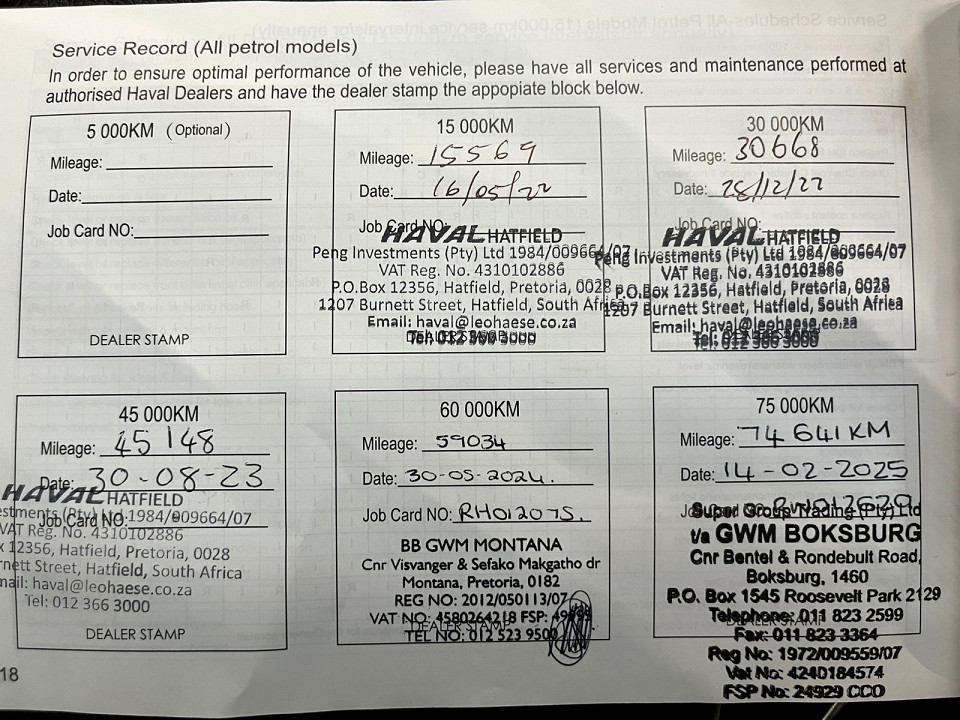 Service Record (All petrol models)
In order to ensure optimal performance of the vehicle, please have all services and maintenance performed at
authorised Haval Dealers and have the dealer stamp the appopiate block below.
5 000KM (Optional)
Mileage:
Date:
Job Card NO:
DEALER STAMP
15 000KM
Mileage: 15569
Date: 16/05/22
Job Card NO:
HAVAL HATFIELD
Peng Investments (Pty) Ltd 1984/009664/07
VAT Reg. No. 4310102886
P.O.Box 12356, Hatfield, Pretoria, 0028
1207 Burnett Street, Hatfield, South Africa
Email: haval@leohaese.co.za
Tel: 012 366 3000
DEALER STAMP
30 000KM
Mileage: 30668
Date: 28/12/22
Job Card NO:
HAVAL HATFIELD
Peng Investments (Pty) Ltd 1984/009664/07
VAT Reg. No. 4310102886
P.O.Box 12356, Hatfield, Pretoria, 0028
1207 Burnett Street, Hatfield, South Africa
Email: haval@leohaese.co.za
Tel: 012 366 3000
45 000KM
Mileage: 45 148
Date: 30-08-23
Job Card NO:
HAVAL HATFIELD
estments (Pty) Ltd 1984/009664/07
VAT Reg. No. 4310102886
x 12356, Hatfield, Pretoria, 0028
rnett Street, Hatfield, South Africa
mail: haval@leohaese.co.za
Tel: 012 366 3000
DEALER STAMP
60 000KM
Mileage: 59034
Date: 30-05-2024.
Job Card NO: RH012075.
BB GWM MONTANA
Cnr Visvanger & Sefako Makgatho dr
Montana, Pretoria, 0182
REG NO: 2012/050113/07
VAT NO: 4580264218 FSP:
TEL NO: 012 523 9500
DEALER STAMP
75 000KM
Mileage: 74 641 KM
Date: 14-02-2025
Super Group Trading (Pty) Ltd
t/a GWM BOKSBURG
Cnr Bentel & Rondebult Road,
Boksburg, 1460
P.O. Box 1545 Roosevelt Park 2129
Telephone: 011 823 2599
DEALER STAMP
Fax: 011 823 3364
Reg No: 1972/009559/07
Vat No: 4240184574
FSP No: 24929 CCO
18